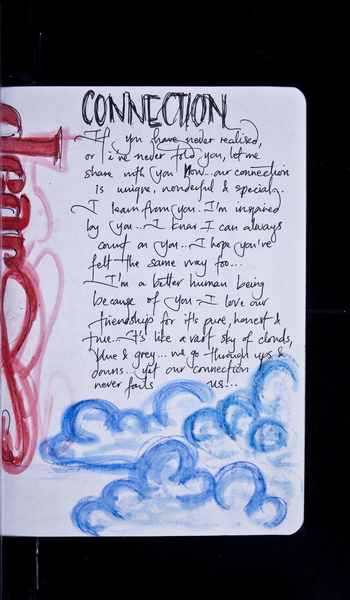 CONNECTION
If you have never realised,
or i've never told you, let me
share with you Now... our connection
is unique, wonderful & special.
I learn from you.. I'm inspired
by you... I know I can always
count on you.. I hope you've
felt the same way too...
I'm a better human being
because of you. I love our
friendship for it's pure, honest &
true... It's like a vast sky of clouds,
blue & grey... we go through ups &
downs... yet our connection
never fails us!..